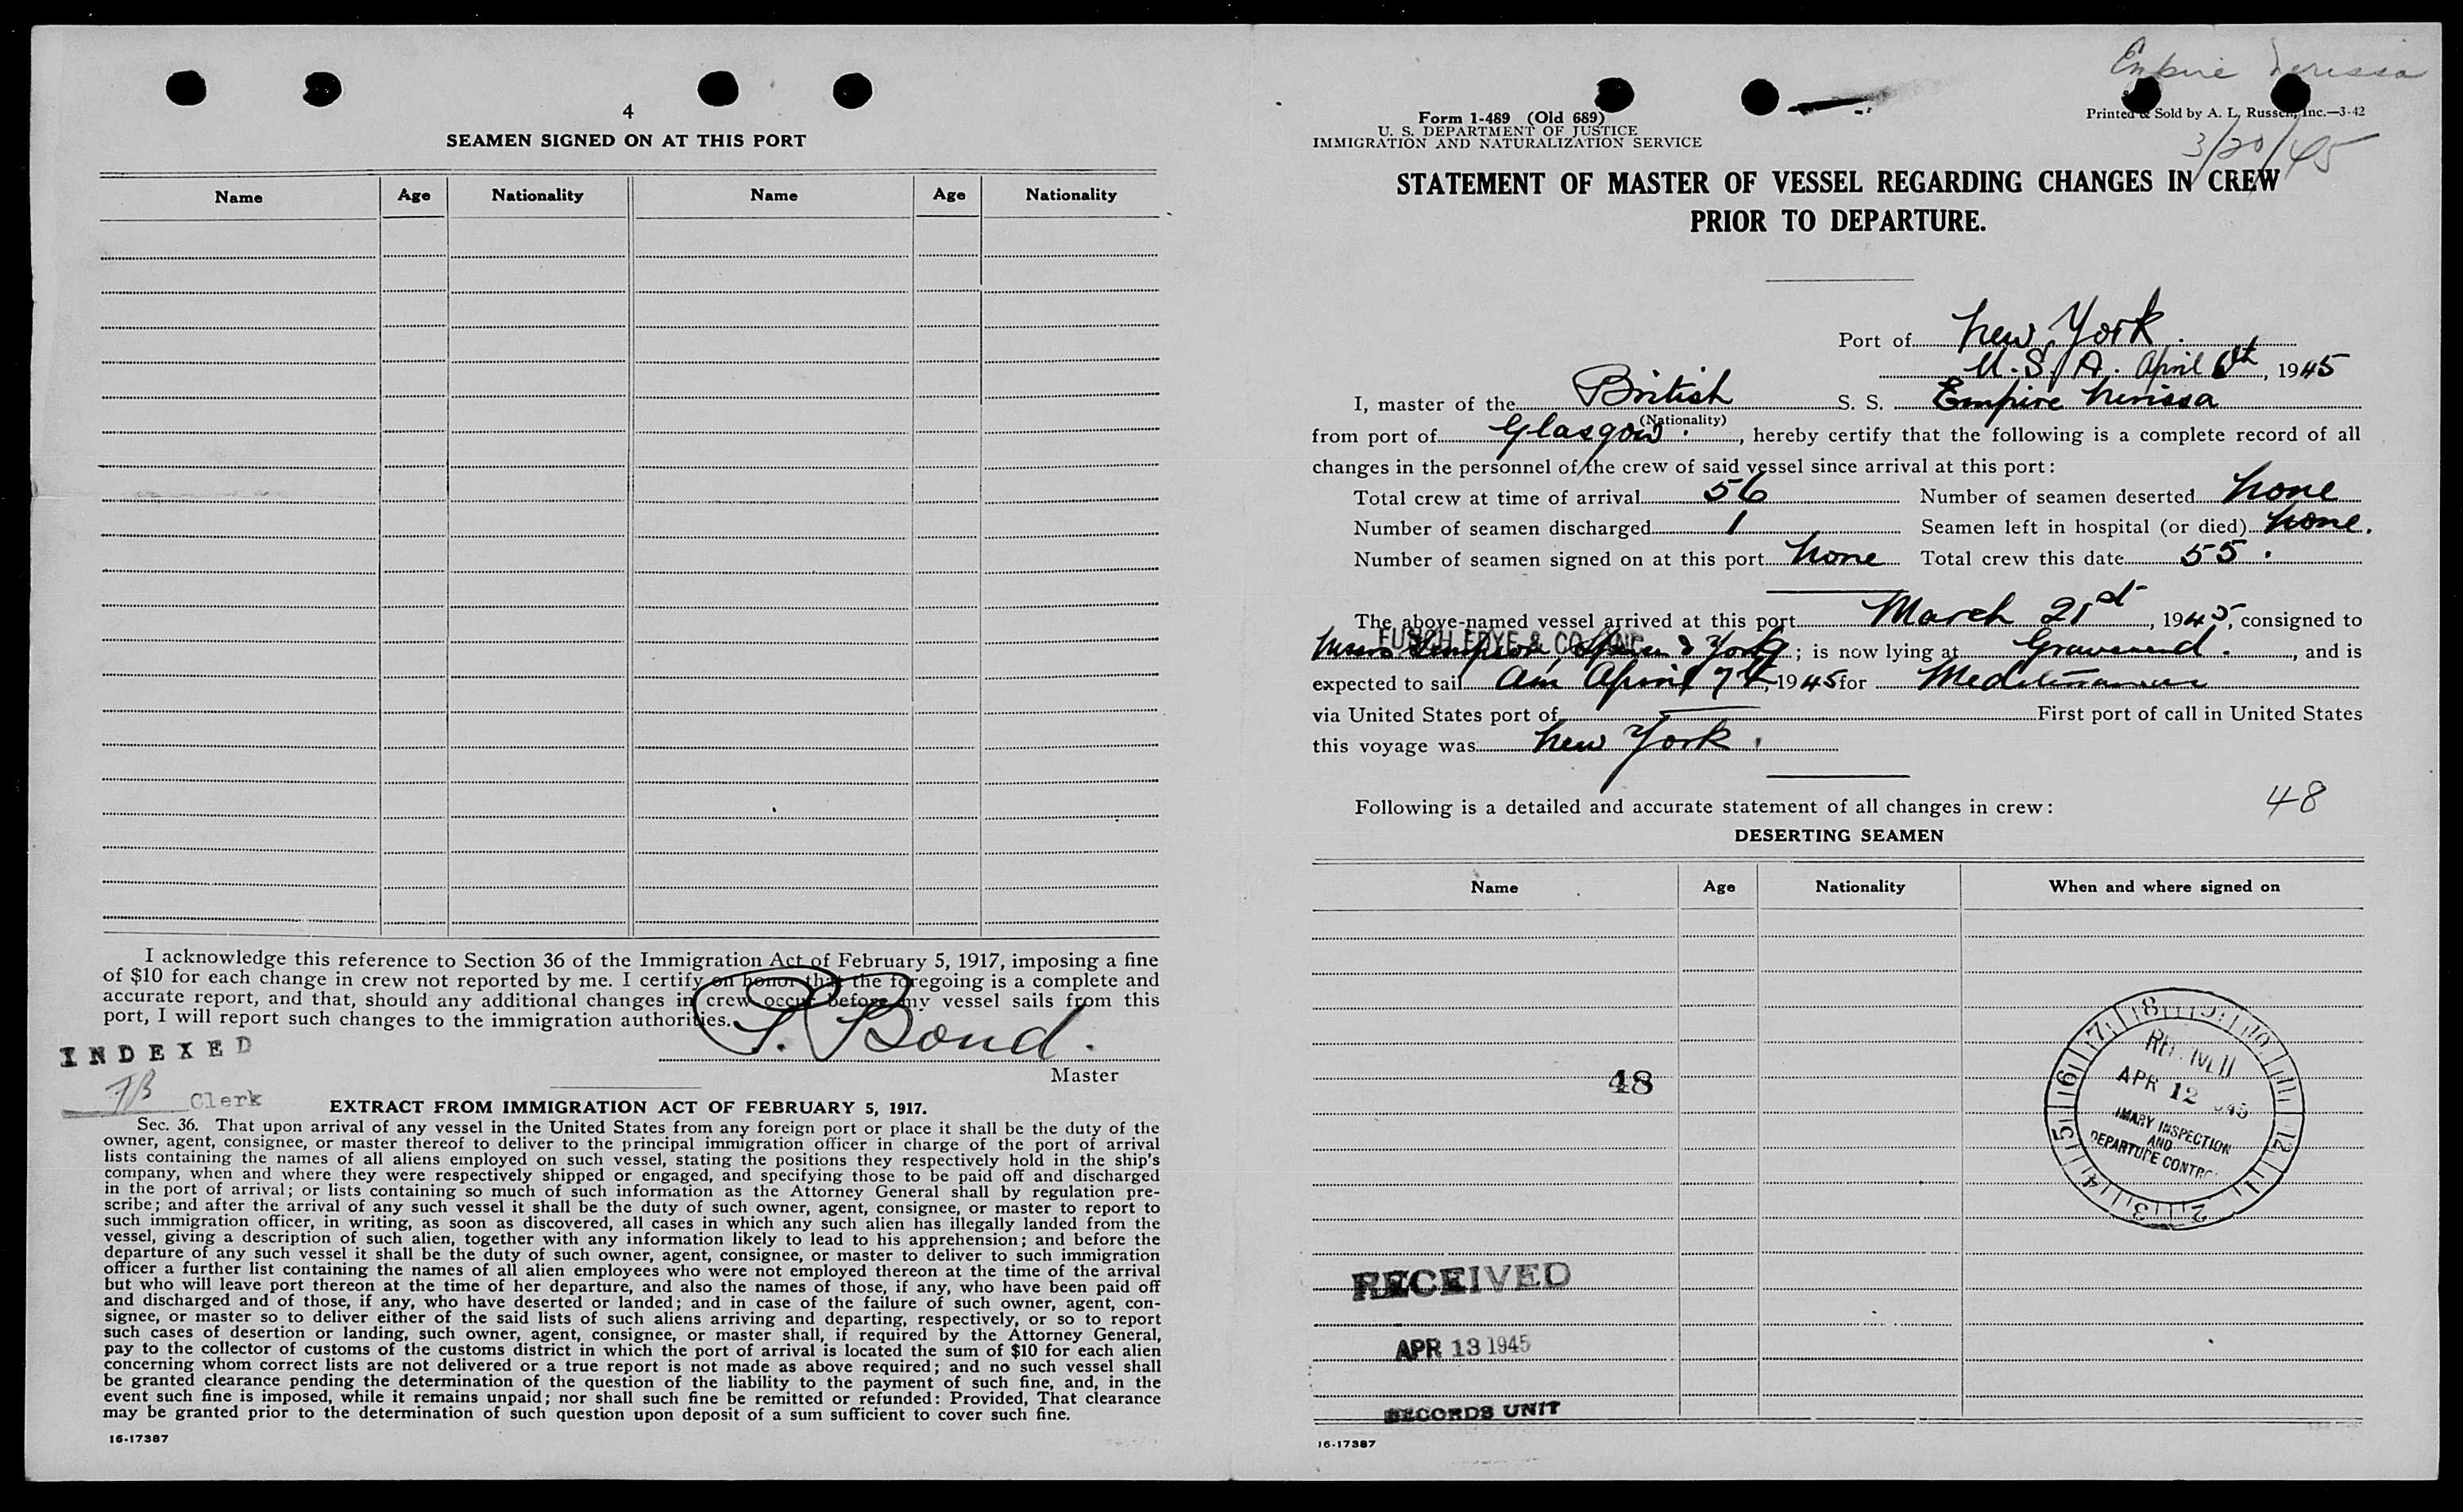 4
SEAMEN SIGNED ON AT THIS PORT
Name Age Nationality Name Age Nationality
I acknowledge this reference to Section 36 of the Immigration Act of February 5, 1917, imposing a fine
of $10 for each change in crew not reported by me. I certify on honor that the foregoing is a complete and
accurate report, and that, should any additional changes in crew occur before my vessel sails from this
port, I will report such changes to the immigration authorities.
P. Bond.
Master
INDEXED
FB Clerk
EXTRACT FROM IMMIGRATION ACT OF FEBRUARY 5, 1917.
Sec. 36. That upon arrival of any vessel in the United States from any foreign port or place it shall be the duty of the
owner, agent, consignee, or master thereof to deliver to the principal immigration officer in charge of the port of arrival
lists containing the names of all aliens employed on such vessel, stating the positions they respectively hold in the ship's
company, when and where they were respectively shipped or engaged, and specifying those to be paid off and discharged
in the port of arrival; or lists containing so much of such information as the Attorney General shall by regulation pre-
scribe; and after the arrival of any such vessel it shall be the duty of such owner, agent, consignee, or master to report to
such immigration officer, in writing, as soon as discovered, all cases in which any such alien has illegally landed from the
vessel, giving a description of such alien, together with any information likely to lead to his apprehension; and before the
departure of any such vessel it shall be the duty of such owner, agent, consignee, or master to deliver to such immigration
officer a further list containing the names of all alien employees who were not employed thereon at the time of the arrival
but who will leave port thereon at the time of her departure, and also the names of those, if any, who have been paid off
and discharged and of those, if any, who have deserted or landed; and in case of the failure of such owner, agent, con-
signee, or master so to deliver either of the said lists of such aliens arriving and departing, respectively, or so to report
such cases of desertion or landing, such owner, agent, consignee, or master shall, if required by the Attorney General,
pay to the collector of customs of the customs district in which the port of arrival is located the sum of $10 for each alien
concerning whom correct lists are not delivered or a true report is not made as above required; and no such vessel shall
be granted clearance pending the determination of the question of the liability to the payment of such fine, and, in the
event such fine is imposed, while it remains unpaid; nor shall such fine be remitted or refunded: Provided, That clearance
may be granted prior to the determination of such question upon deposit of a sum sufficient to cover such fine.
16-17387
Empire Nerissa
Form 1-489 (Old 689)
U. S. DEPARTMENT OF JUSTICE
IMMIGRATION AND NATURALIZATION SERVICE
Printed & Sold by A. L. Russell, Inc.—3-42
3/20/45
STATEMENT OF MASTER OF VESSEL REGARDING CHANGES IN CREW
PRIOR TO DEPARTURE.
Port of New York.
U.S.A. April 6th, 1945
I, master of the British S. S. Empire Nerissa
(Nationality)
from port of Glasgow., hereby certify that the following is a complete record of all
changes in the personnel of the crew of said vessel since arrival at this port:
Total crew at time of arrival 56 Number of seamen deserted None
Number of seamen discharged 1 Seamen left in hospital (or died) None.
Number of seamen signed on at this port None Total crew this date 55.
The above-named vessel arrived at this port March 21st, 1945, consigned to
FUNCH EDYE & CO. INC.
Messrs Simpson, Spence & Young; is now lying at Gravesend., and is
expected to sail am April 7th, 1945 for Mediterranean
via United States port of First port of call in United States
this voyage was New York.
Following is a detailed and accurate statement of all changes in crew: 48
DESERTING SEAMEN
Name Age Nationality When and where signed on
48
8 9 10 11 12 1 2 3 4 5 6 7
APR 12
INSPECTION
AND
DEPARTURE
RECEIVED
APR 13 1945
RECORDS UNIT
16-17387